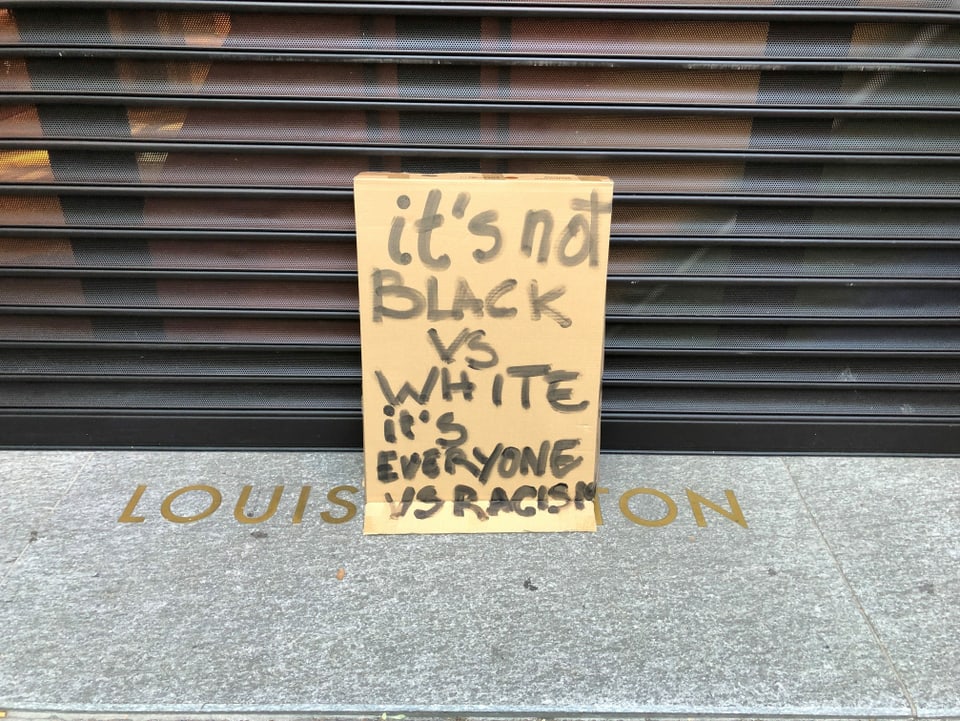 it's not
BLACK
vs
WHITE
it's
EVERYONE
VS RACISM
LOUIS TON